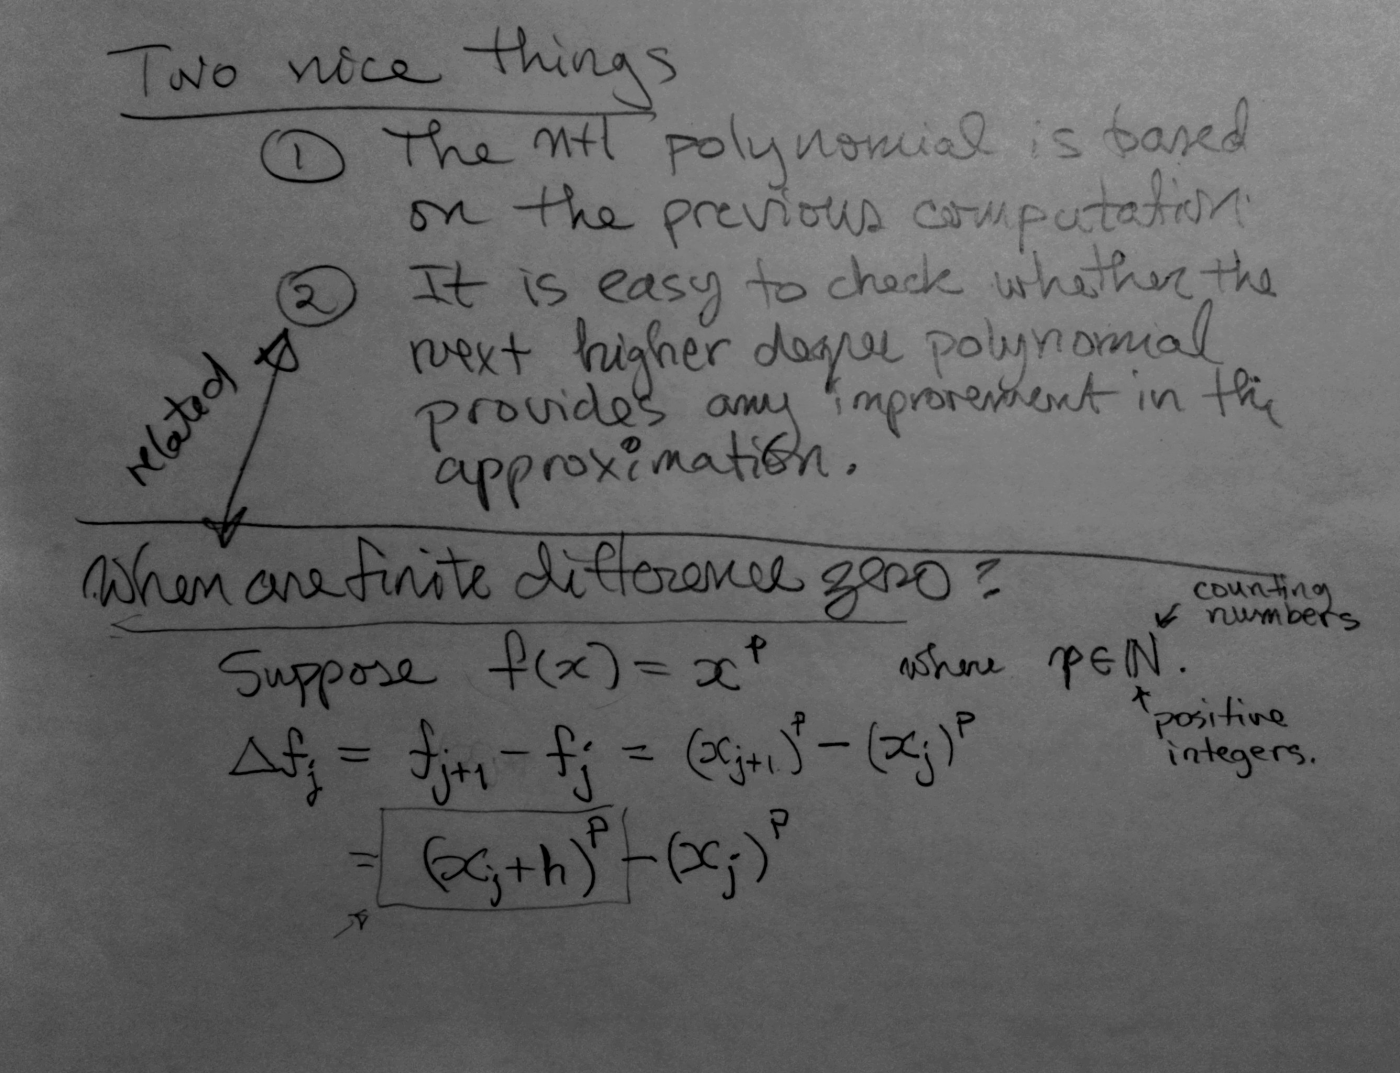 Two nice things
① The n+1 polynomial is based
on the previous computation.
② It is easy to check whether the
next higher degree polynomial
provides any improvement in the
approximation.
related
When are finite difference zero?
counting
numbers
Suppose f(x) = x^p where p∈ℕ.
positive
integers.
Δf_j = f_{j+1} - f_j = (x_{j+1})^p - (x_j)^p
= (x_j+h)^p - (x_j)^p